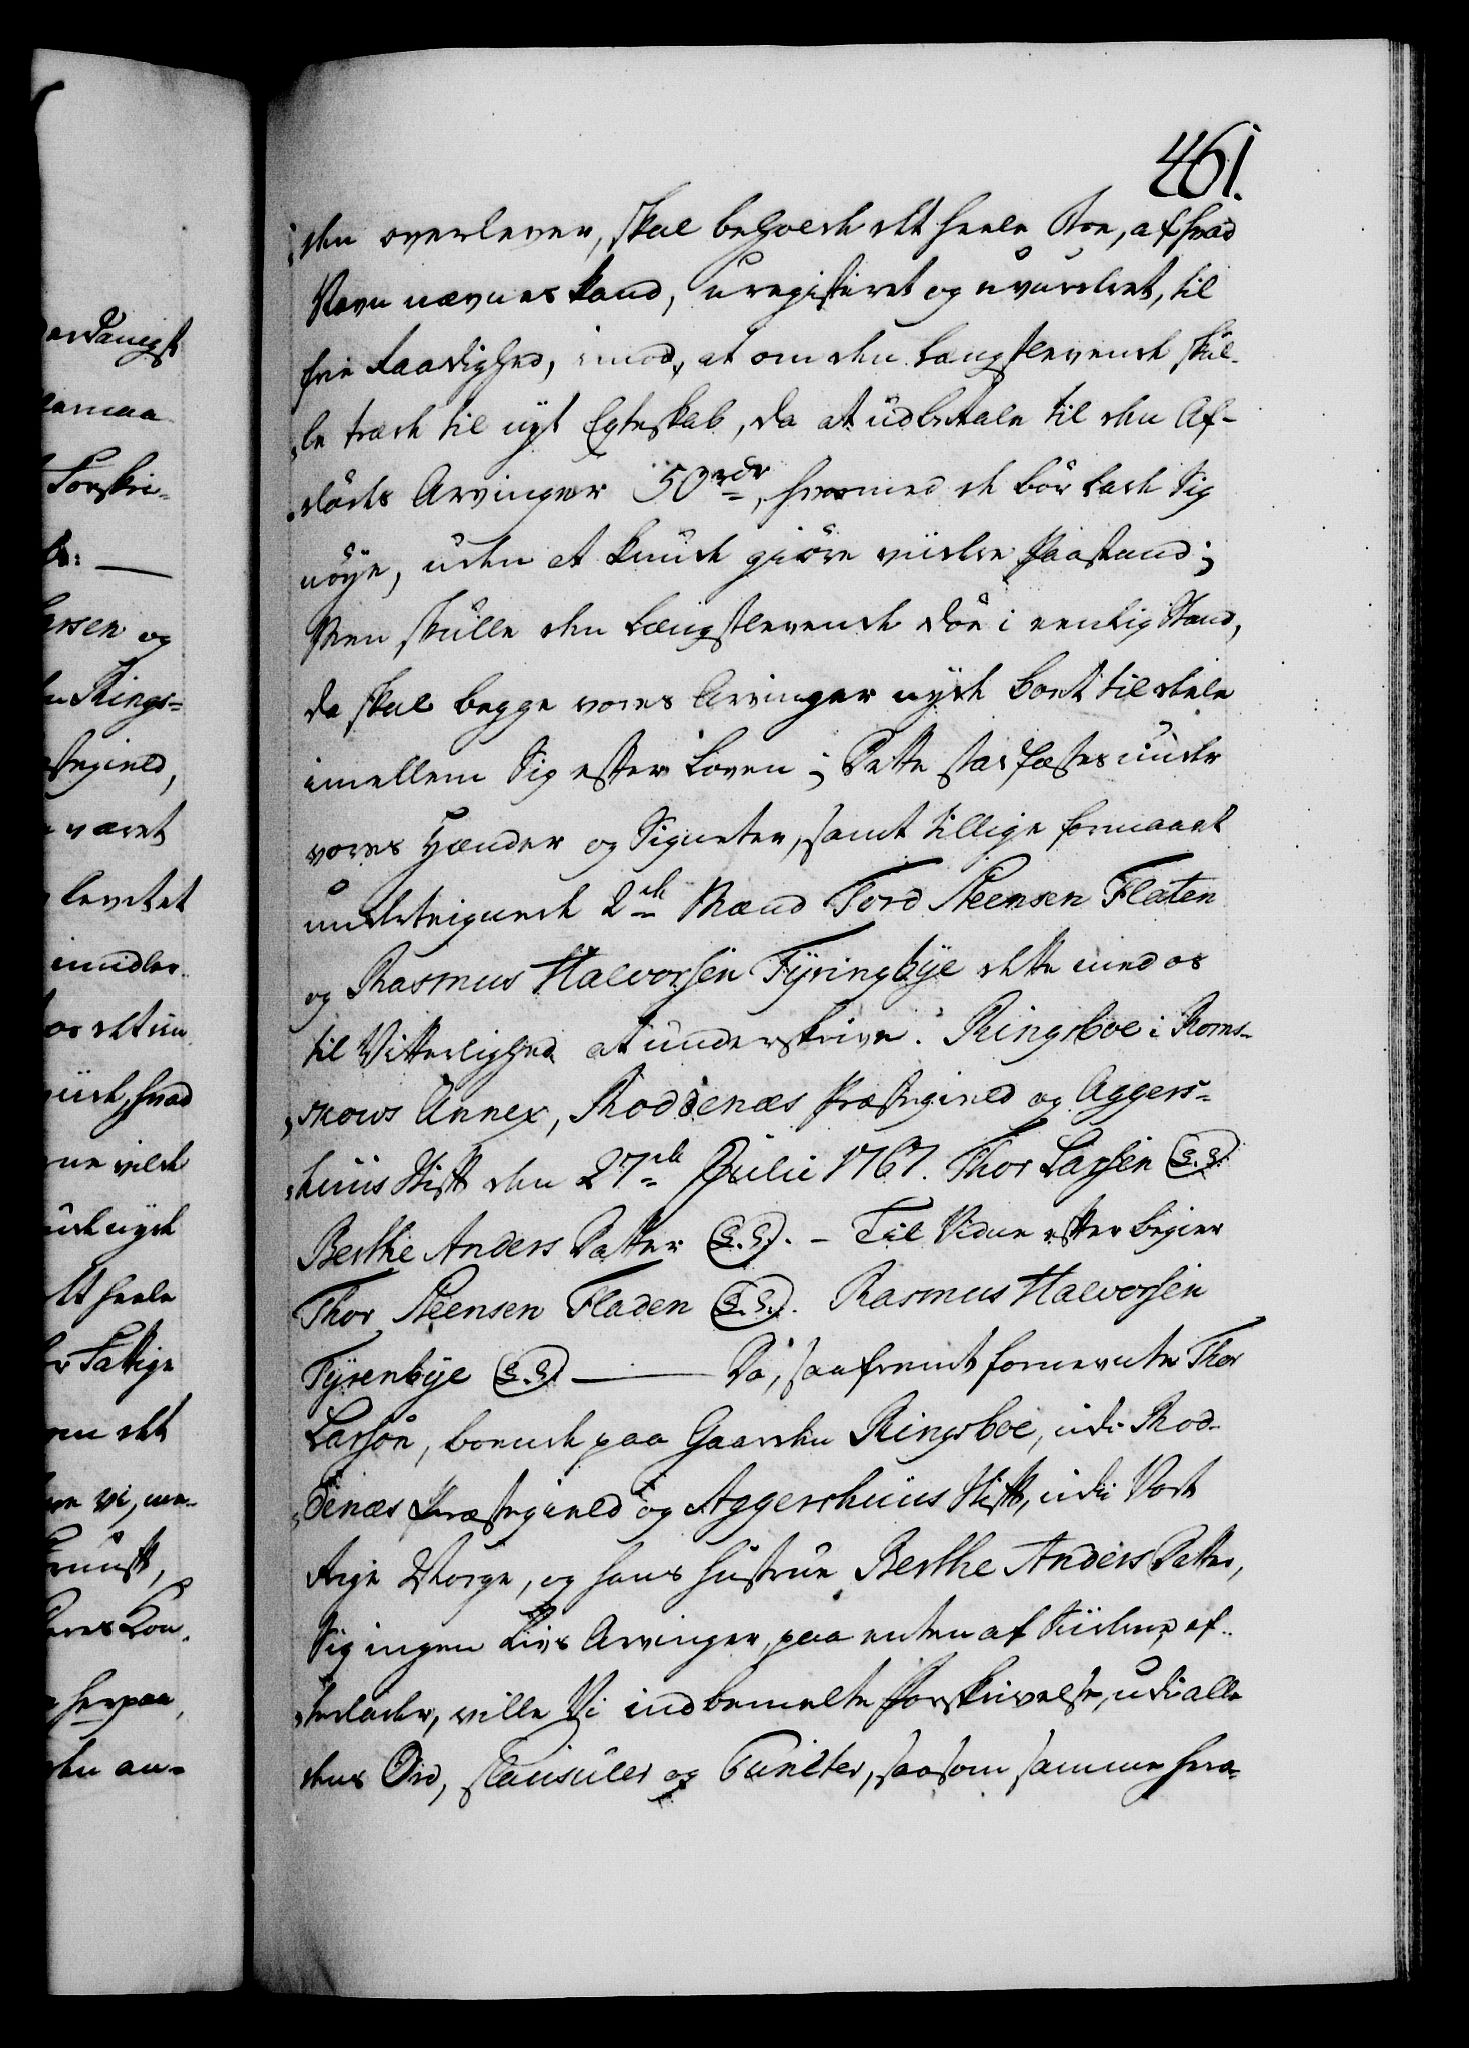 461.
den overlever, skal beholde det heele Boe, af hvad
Navn nævnes kand, uregistreret og uvurderet, til
frie Raadighed, imod, at om den længstlevende skul-
le træde til nyt Egteskab, da at udbetale til den Af-
døds Arvinger 50 rdr, hvormed de bør lade Sig
nøye, uden at kunde giøre viidere Paastand;
Men skulle den Længstlevende døe i eenlig Stand,
da skal begge vores Arvinger nyde Boet til deele
imellem Sig efter Loven; Dette stadfæstes under
vores Hænder og Signeter, samt tillige formaaet
undertegnede 2de Mænd Tord Steensen Flaten
og Rasmus Halvorsen Fÿringbÿe dette med os
til Vitterlighed at underskrive. Ringsboe i Roms-
kows Annex, Roddenæs Præstegield og Aggers-
huus Stift den 27de Julii 1767. Thor Larsen (L.S.)
Berthe Anders Datter (L.S.). - Til Vidne efter begier
Thor Steensen Fladen (L.S.). Rasmus Halvorsen
Fÿrenbÿe (L.S.) — Da, saafremt fornevnte Thor
Larsøn, boende paa Gaarden Ringsboe, udi Rod-
denæs Præstegield og Aggershuus Stift, udi Vort
Rige Norge, og hans Hustrue Berthe Anders Datter,
Sig ingen Livs Arvinger, paa enten af Siiderne ef-
terlader, ville Vi indbemelte Forskrivelse, udi alle
dens Ord, Clausuler og Puncter, saasom samme her-